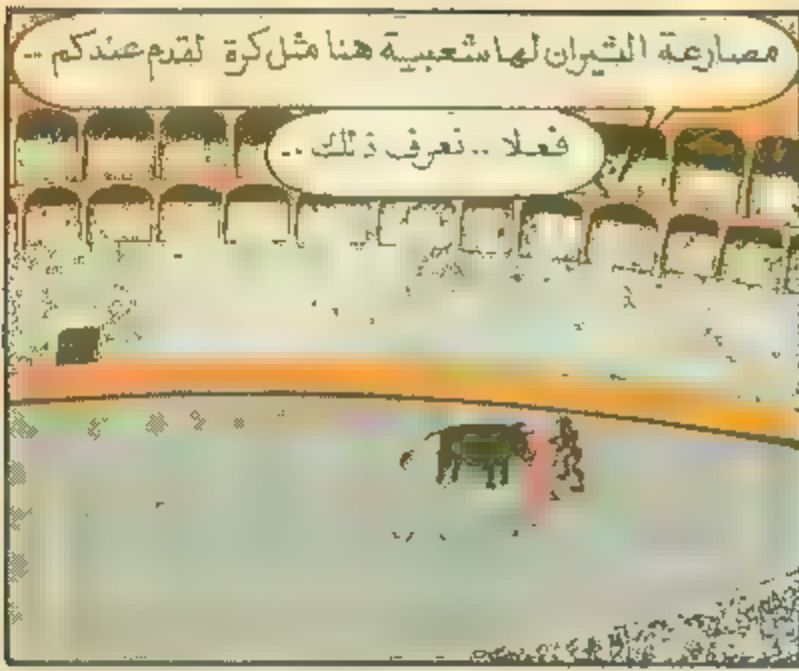 مصارعة الثيران لها شعبية هنا مثل كرة لقدم عندكم ..
فعلا .. نعرف ذلك ..